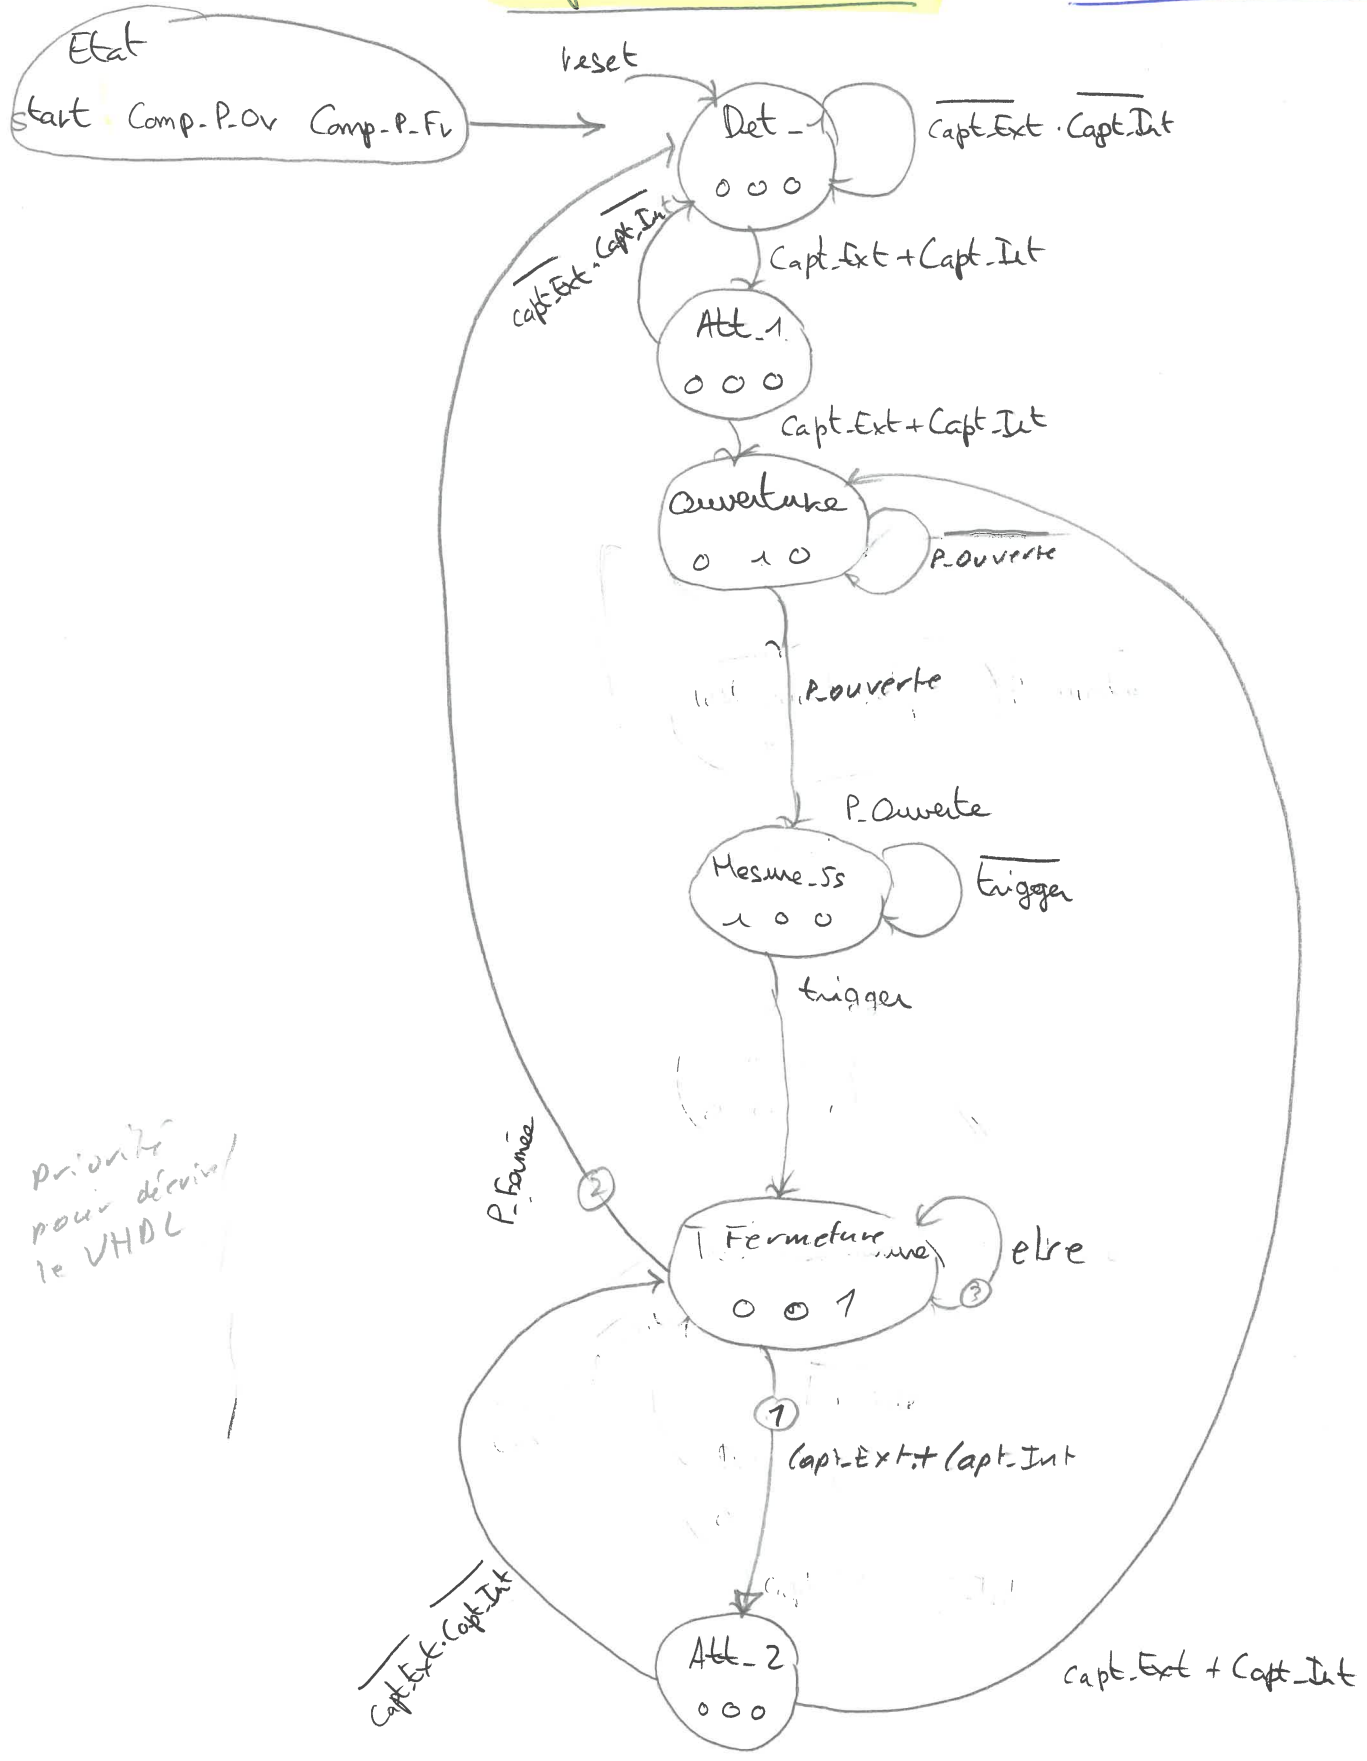 Etat
start Comp_P_Ov Comp_P_Fr
reset
Det_1
0 0 0
Capt_Ext . Capt_Int
Capt_Ext . Capt_Int
Capt_Ext + Capt_Int
Att_1
0 0 0
Capt_Ext + Capt_Int
Ouverture
0 1 0
P_ouverte
P_ouverte
P_Ouverte
Mesure_5s
1 0 0
trigger
trigger
P_Fermée
2
Priorité
pour décrire
le VHDL
Fermeture
0 0 1
else
3
1
Capt_Ext + Capt_Int
Capt_Ext . Capt_Int
Att_2
0 0 0
Capt_Ext + Capt_Int